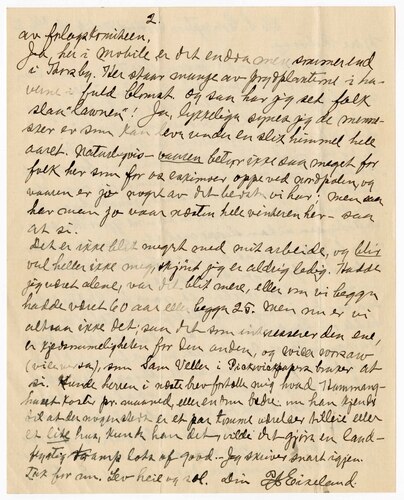 2.
av forlagskomiteen,
Ja, her i Mobile er det endra mer sommer end
i Thorsby. Her staar mange av prydplanterne i ha-
verne i fuld blomst. og saa har jeg set folk
slaa "lawnen"! Ja, lykkelige synes jeg de menne-
sker er som kan leve under en slik himmel hele
aaret. Naturligvis vaaren betyr ikke saa meget for
folk her som for os eskimoer oppe ved nordpolen, og
vaaren er jo noget av det bedste vi har! men saa
har man jo vaar næsten hele vinteren her - saa
at si.
Det er ikke blet meget med mit arbeide, og blir
vel heller ikke meget, skjønt jeg er aldrig ledig. Hadde
jeg været alene, var det blet mere, eller om vi begge
hadde været 60 aar eller begge 25. Men nu er vi
altsaa ikke det; saa det som interesserer den ene,
er kjedsommeligheten for den anden, og
(vice versa), som Sam Veller i Pickwick bruker at
si. Kunde heren i næste brev fortelle mig hvad
huset koster pr maaned, eller endnu bedre om han kjender
til at der nogensteds er et par tomme værelser tilleie eller
et lite hus, kunde han det, vilde det gjøre en land-
flygtig tramp lots of good. - Jeg skriver snart igjen.
Tak for nu. Lev heil og sæl. Din